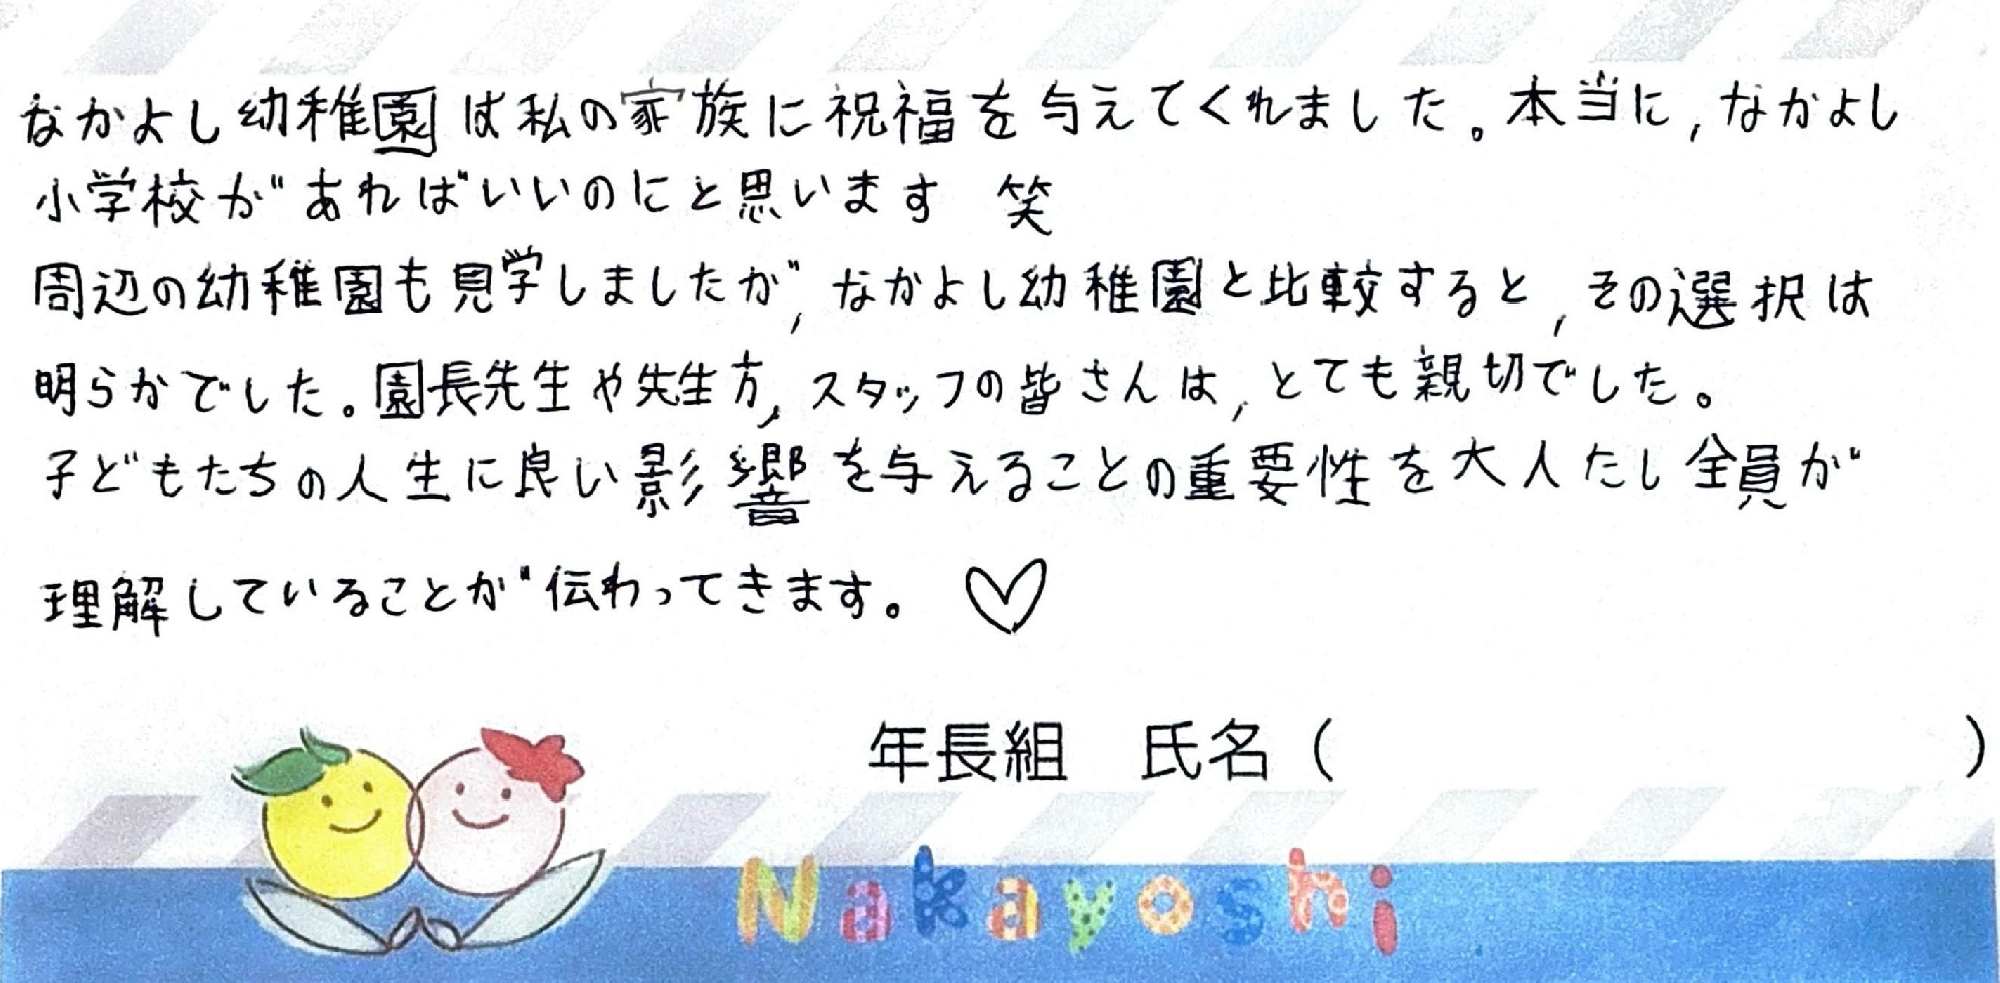 なかよし幼稚園は私の家族に祝福を与えてくれました。本当に,なかよし
小学校があればいいのにと思います 笑
周辺の幼稚園も見学しましたが,なかよし幼稚園と比較すると,その選択は
明らかでした。園長先生や先生方,スタッフの皆さんは,とても親切でした。
子どもたちの人生に良い影響を与えることの重要性を大人たし全員が
理解していることが伝わってきます。♡
年長組 氏名（ ）
Nakayoshi